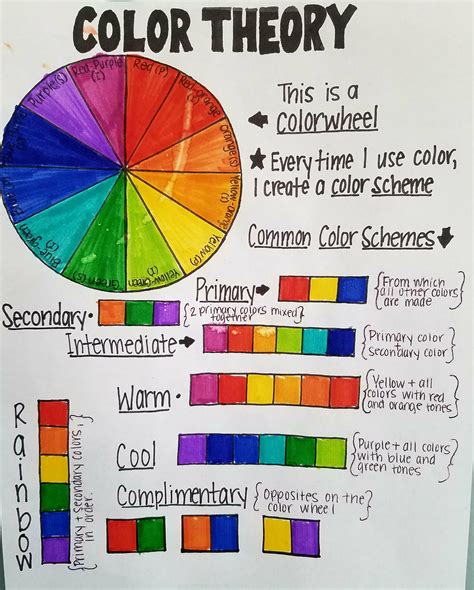 COLOR THEORY
Red (P)
Red-Orange
(I)
Orange(s)
Yellow-Orange
(I)
Yellow(P)
Yellow-Green
(I)
Green(s)
Blue green
(I)
Purple(s)
Red-Purple
(I)
This is a
colorwheel
Every time I use color,
I create a color scheme
Common Color Schemes
Primary
From which
all other colors
are made
Secondary
2 primary colors mixed
together
Intermediate
Primary color
Secondary color
Warm
Yellow + all
colors with red
and orange tones
Cool
Purple + all colors
with blue and
green tones
Rainbow
Primary + Secondary colors,
in order.
Complimentary
Opposites on the
color wheel